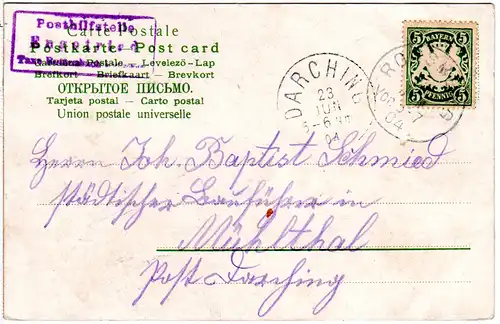 Posthilfstelle
Carte Postale
Postkarte - Post card
Cartolina Postale - Levelező-Lap
Brefkort - Briefkaart - Brevkort
ОТКРЫТОЕ ПИСЬМО.
Tarjeta postal - Carto postal
Union postale universelle
BAYERN
5 5
PFENNIG
DARCHING
23
JUN
04
04
Herrn Joh. Baptist Schmied
städtischer Bauführer in
Mühlthal
Post Darching